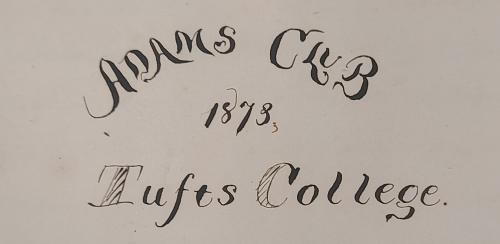 ADAMS CLUB
1873,
Tufts College.